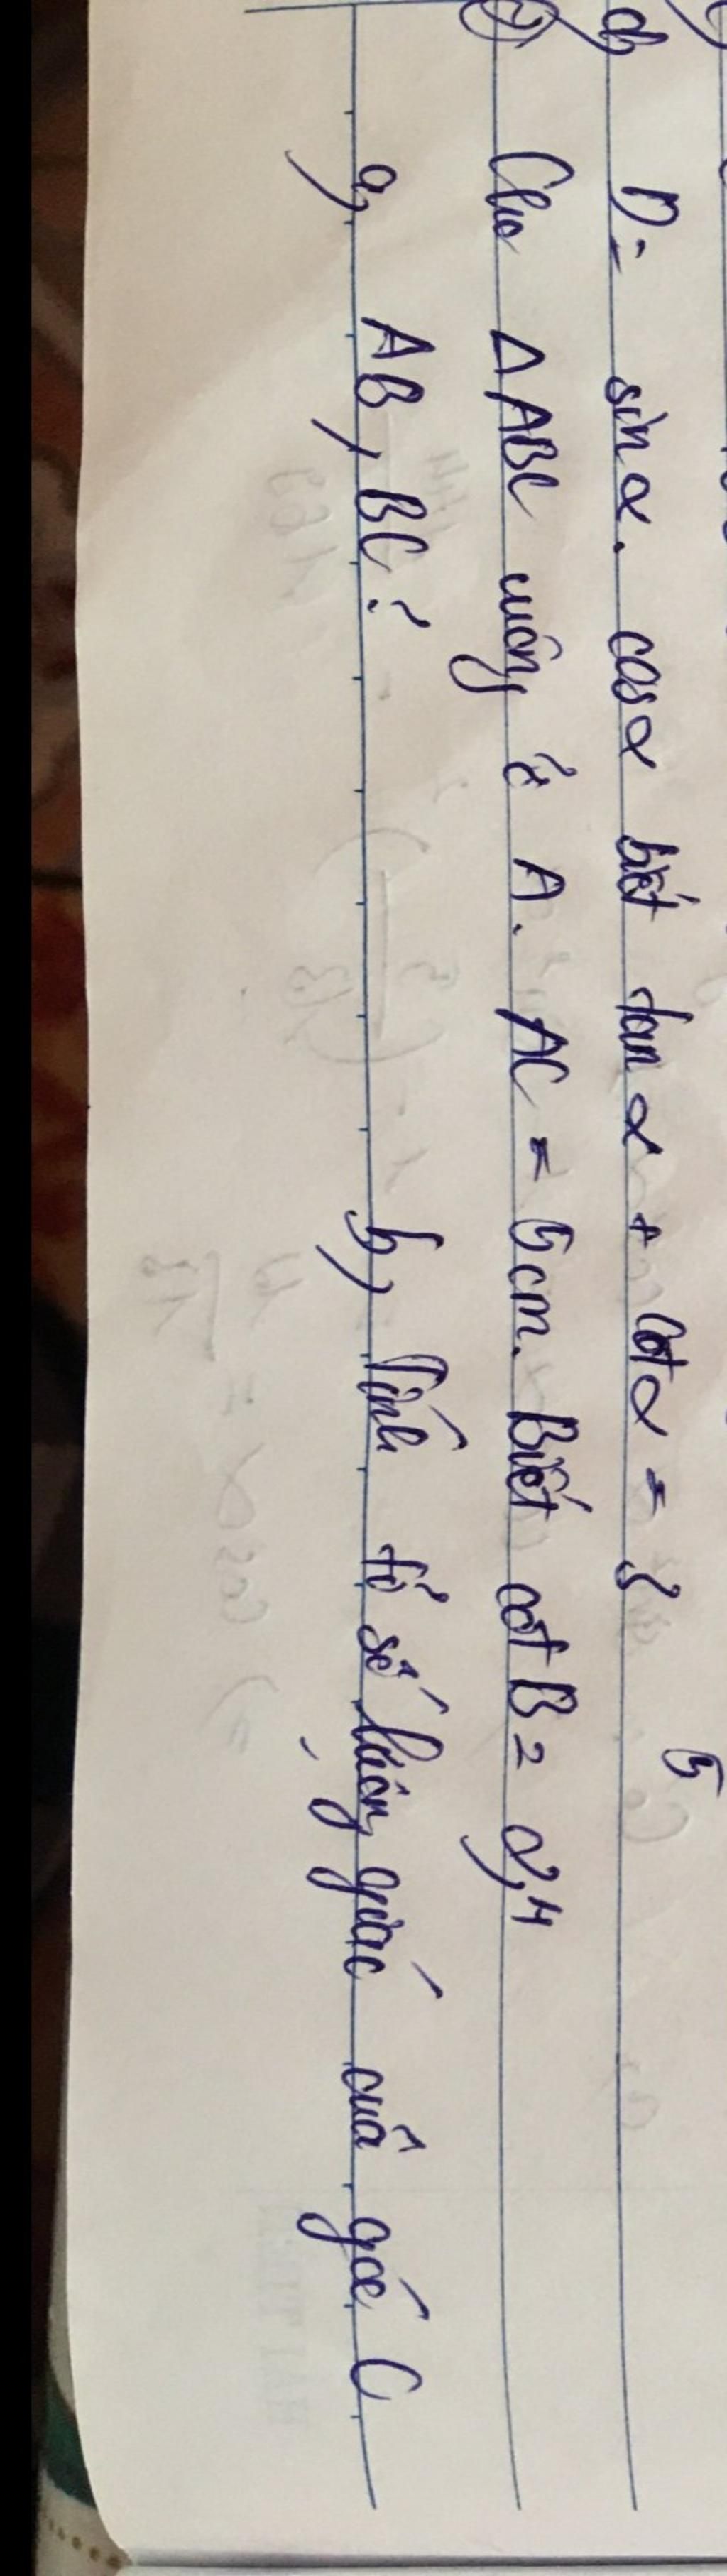 d, D = sin α. cos α biết tan α + cot α = 3
② Cho Δ ABC vuông ở A. AC = 5cm. Biết cot B = 2,4
a, AB, BC? b, Tính tỉ số lượng giác của góc C